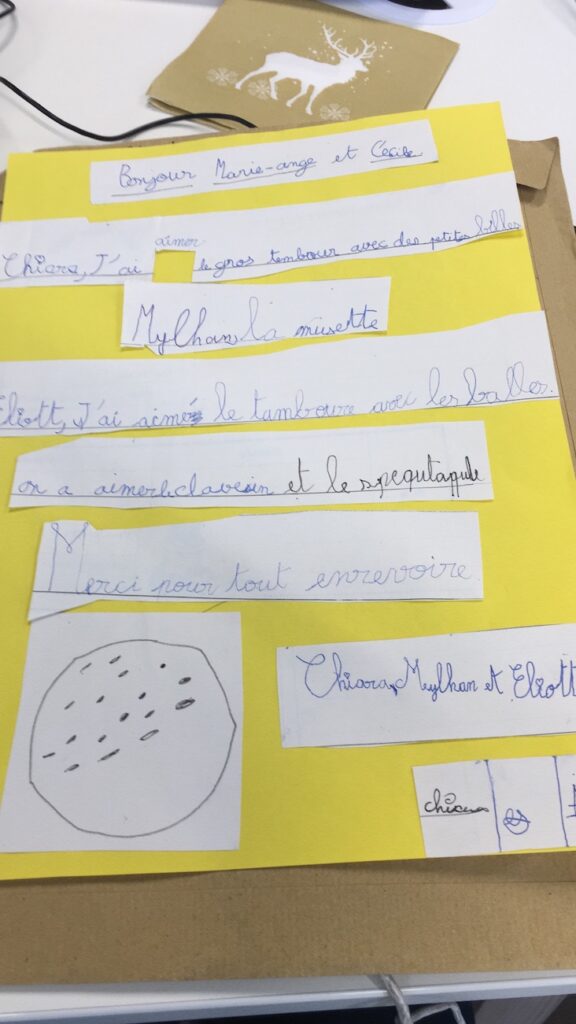 Bonjour Marie-ange et Cécile
Chiara, J'ai aimer le gros tembour avec des petites billes
Mylhan la musette
Eliott, J'ai aimé le tamboure avec les balles.
on a aimer le clavesin et le spequtaqule
Merci pour tout enrevoire.
Chiara, Mylhan et Eliott
chiara